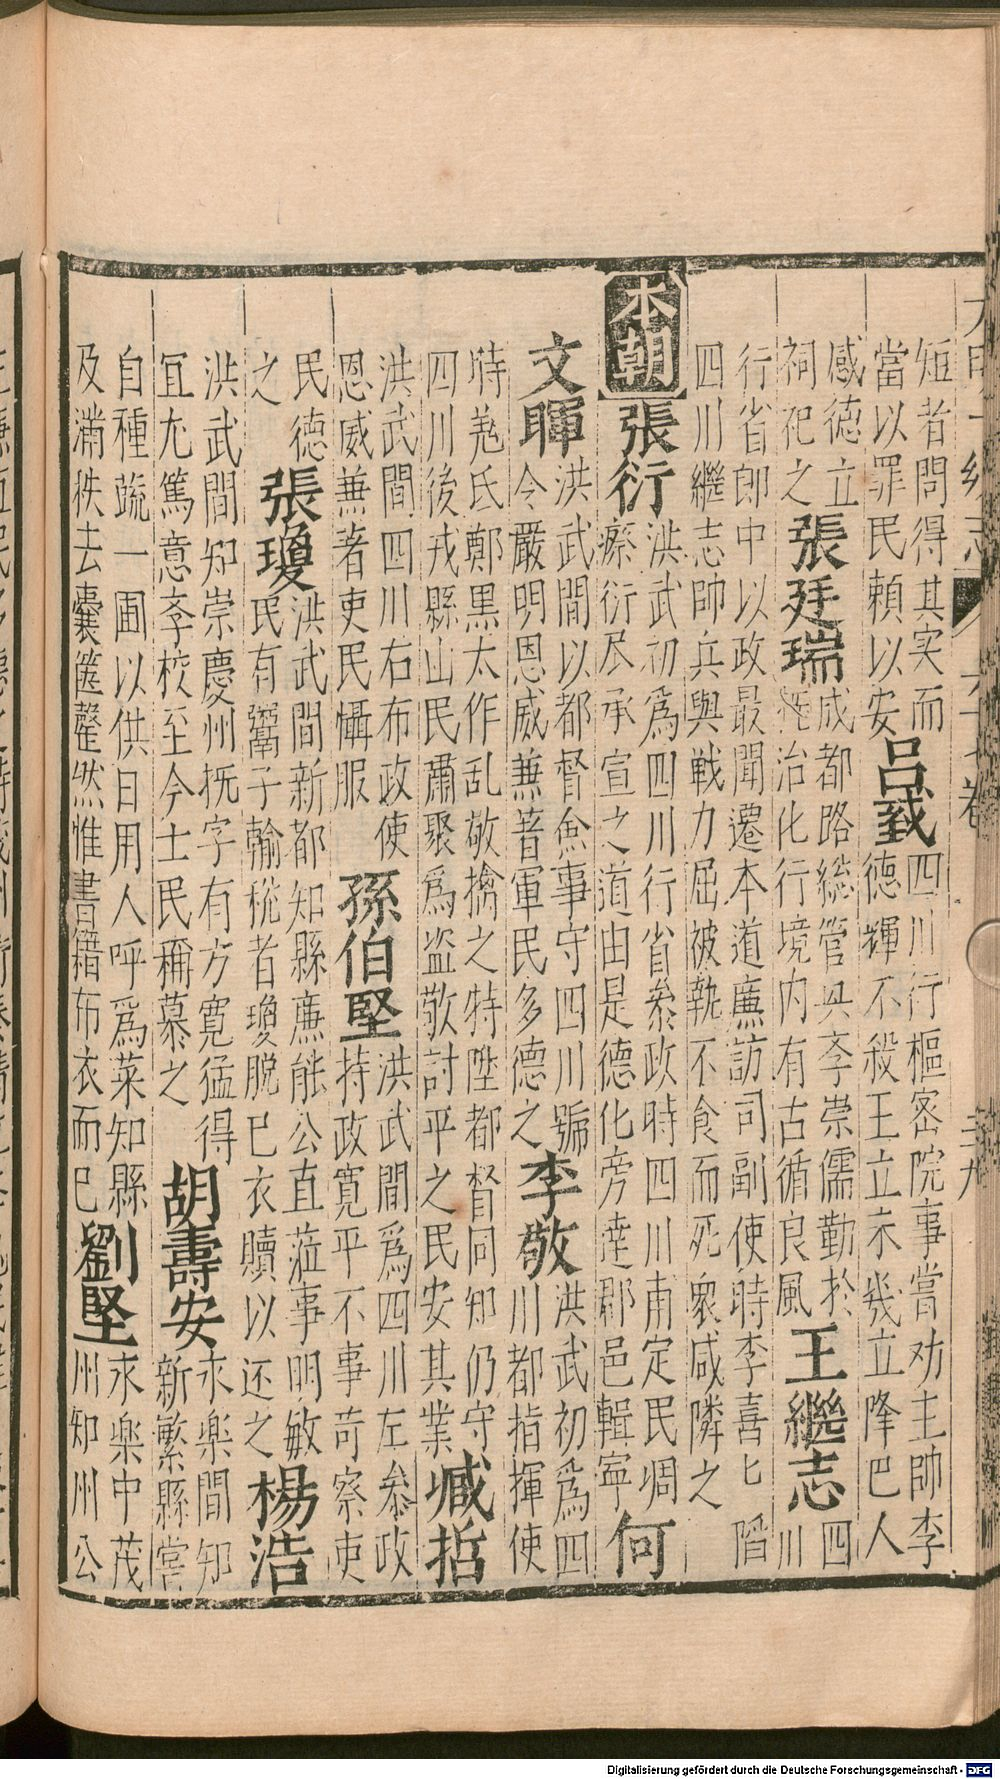 短者問得其実而
當以罪民頼以安
呂
四川行樞密院事嘗劝主帥李
德輝不殺王立未幾立降巴人
感德立
祠祀之
張廷瑞
成都路総管㒷斈崇儒勤於
治化行境内有古循良風
王繼志
四
川
行省郎中以政最聞遷本道廉訪司副使時李喜匕䧟
四川繼志帥兵與戦力屈被執不食而死衆咸隣之
本朝
張衍
洪武初爲四川行省叅政時四川甫定民凋
瘵衍尽承宣之道由是德化旁達郡邑輯寧
何
文暉
洪武間以都督僉事守四川號
令嚴明恩威兼著軍民多德之
李敬
洪武初爲四
川都指揮使
時羌氐鄭黒太作乱敬擒之特陞都督同知仍守
四川後戎縣山民嘯聚爲盗敬討平之民安其業
臧哲
洪武間四川右布政使
恩威兼著吏民懾服
孫伯堅
洪武間爲四川左叅政
持政寛平不事苛察吏
民德
之
張瓊
洪武間新都知縣廉能公直蒞事明敏
民有鬻子輸税者瓊脫巳衣贖以还之
楊浩
洪武間知崇慶州抚字有方寛猛得
冝尤篤意斈校至今士民稱慕之
胡壽安
永楽間知
新繁縣嘗
自種蔬一圃以供日用人呼爲菜知縣
及滿秩去嚢篋罄然惟書籍布衣而巳
劉堅
永楽中茂
州知州公
Digitalisierung gefördert durch die Deutsche Forschungsgemeinschaft - DFG